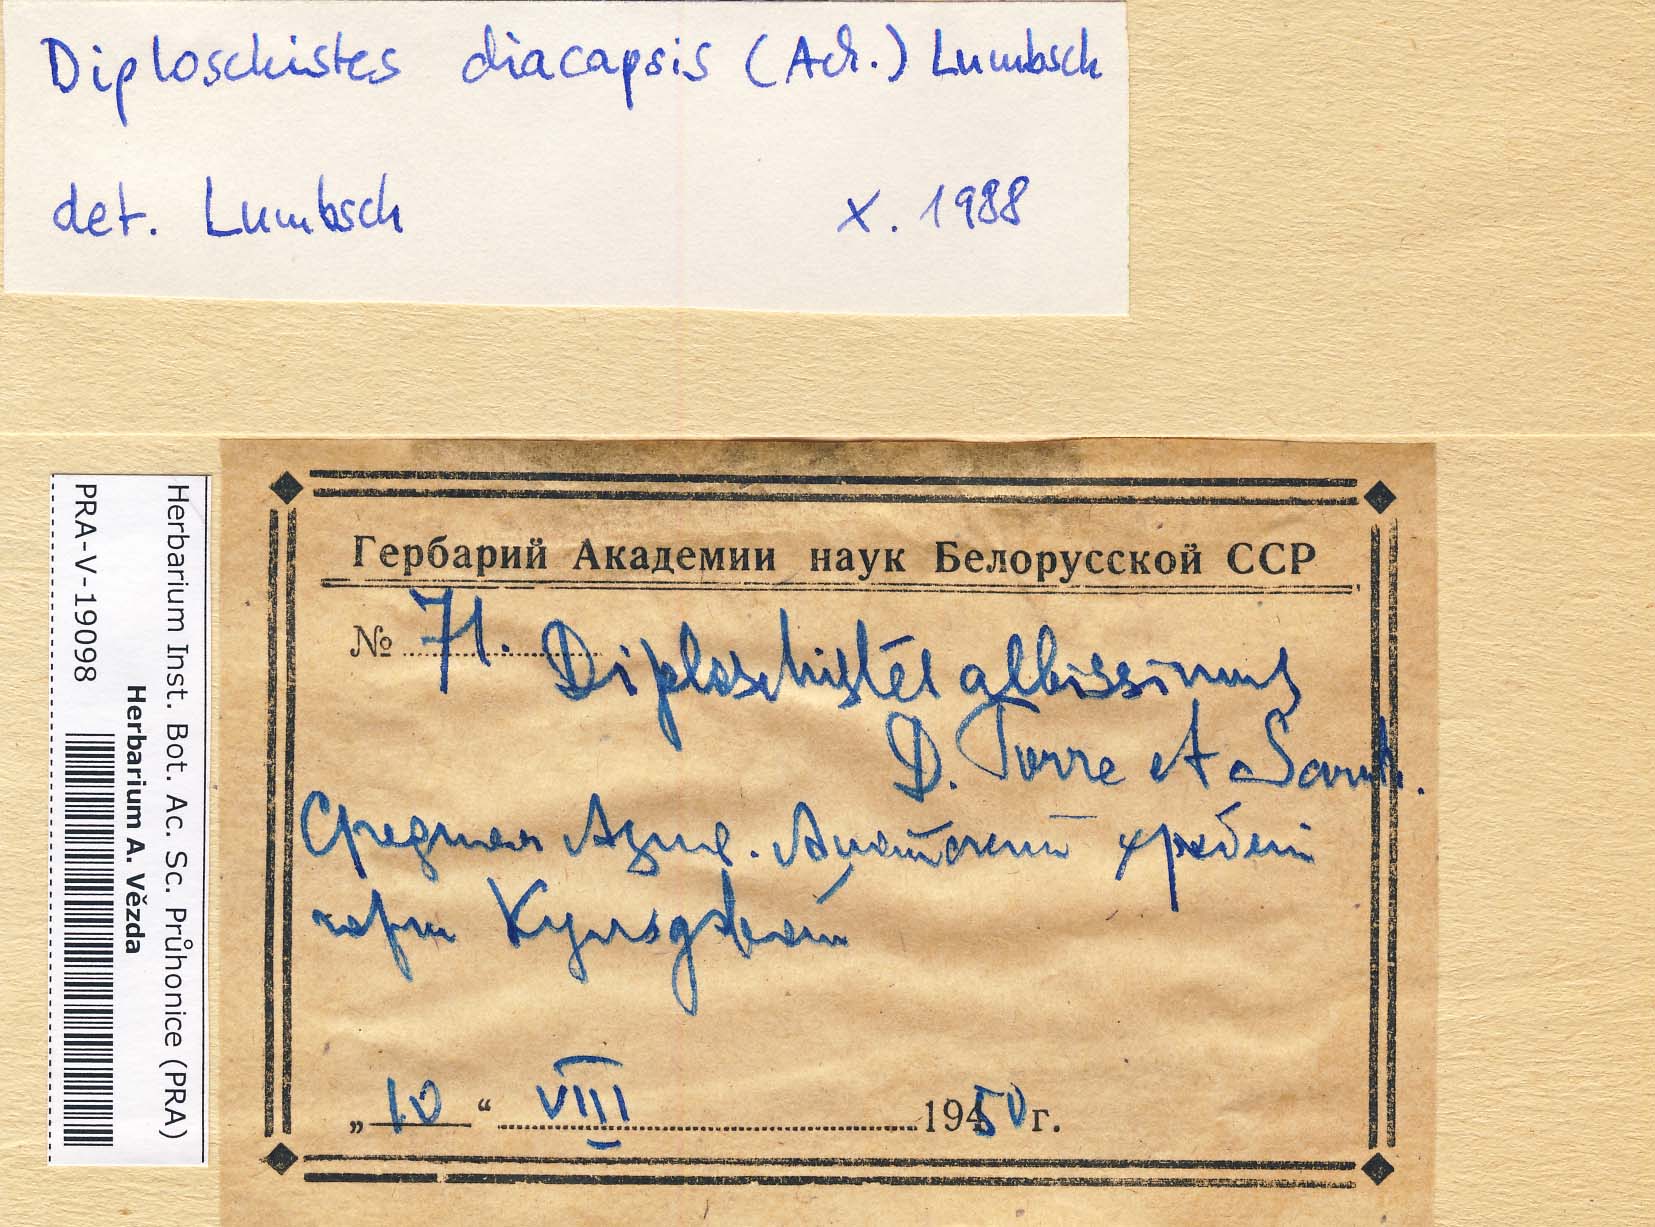 Diploschistes diacapsis (Ach.) Lumbsch
det. Lumbsch X. 1988
Herbarium Inst. Bot. Ac. Sc. Průhonice (PRA)
Herbarium A. Vězda
PRA-V-19098
Гербарий Академии наук Белорусской ССР
№ 71. Diploschistes albissimus
D. Torre et Sarnth.
Средняя Азия. хребет
горы
„10“ VIII 1950 г.